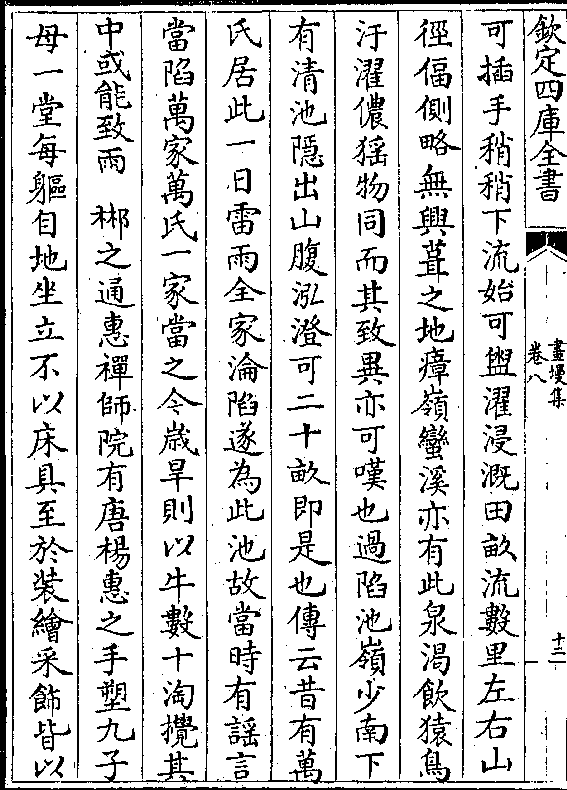 欽定四庫全書
畫墁集
卷八
十二
可插手稍稍下流始可盥濯浸溉田畝流數里左右山
徑偪側略無興葺之地瘴嶺蠻溪亦有此泉渴飲猿鳥
汙濯儂猺物同而其致異亦可嘆也過陷池嶺少南下
有清池隱出山腹泓澄可二十畝即是也傳云昔有萬
氏居此一日雷雨全家淪陷遂為此池故當時有謡言
當陷萬家萬氏一家當之今歳旱則以牛數十淘攪其
中或能致雨 郴之通惠禪師院有唐楊惠之手塑九子
母一堂每軀自地坐立不以床具至於装繪采飾皆以